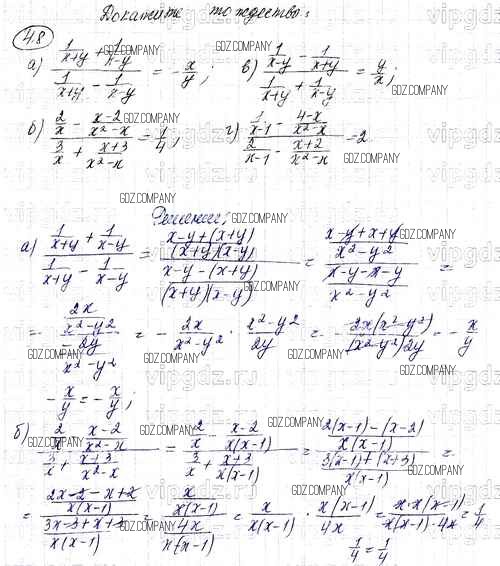 Докажите тождество:
48
а) (1/(x+y) + 1/(x-y)) / (1/(x+y) - 1/(x-y)) = -x/y; в) (1/(x-y) - 1/(x+y)) / (1/(x+y) + 1/(x-y)) = y/x;
б) (2/x - (x-2)/(x²-x)) / (3/x + (x+3)/(x²-x)) = 1/4; г) (1/(x-1) - (4-x)/(x²-x)) / (2/(x-1) - (x+2)/(x²-x)) = 2
Решение:
а) (1/(x+y) + 1/(x-y)) / (1/(x+y) - 1/(x-y)) = ((x-y+(x+y))/((x+y)(x-y))) / ((x-y-(x+y))/((x+y)(x-y))) = ((x-y+x+y)/(x²-y²)) / ((x-y-x-y)/(x²-y²)) =
= (2x/(x²-y²)) / (-2y/(x²-y²)) = - 2x/(x²-y²) · (x²-y²)/2y = - 2x(x²-y²)/((x²-y²)2y) = - x/y
-x/y = -x/y;
б) (2/x - (x-2)/(x²-x)) / (3/x + (x+3)/(x²-x)) = (2/x - (x-2)/(x(x-1))) / (3/x + (x+3)/(x(x-1))) = ((2(x-1)-(x-2))/(x(x-1))) / ((3(x-1)+(x+3))/(x(x-1))) =
= ((2x-2-x+2)/(x(x-1))) / ((3x-3+x+3)/(x(x-1))) = (x/(x(x-1))) / (4x/(x(x-1))) = x/(x(x-1)) · x(x-1)/4x = x·x(x-1)/(x(x-1)·4x) = 1/4
1/4 = 1/4
GDZ.COMPANY
vipgdz.ru